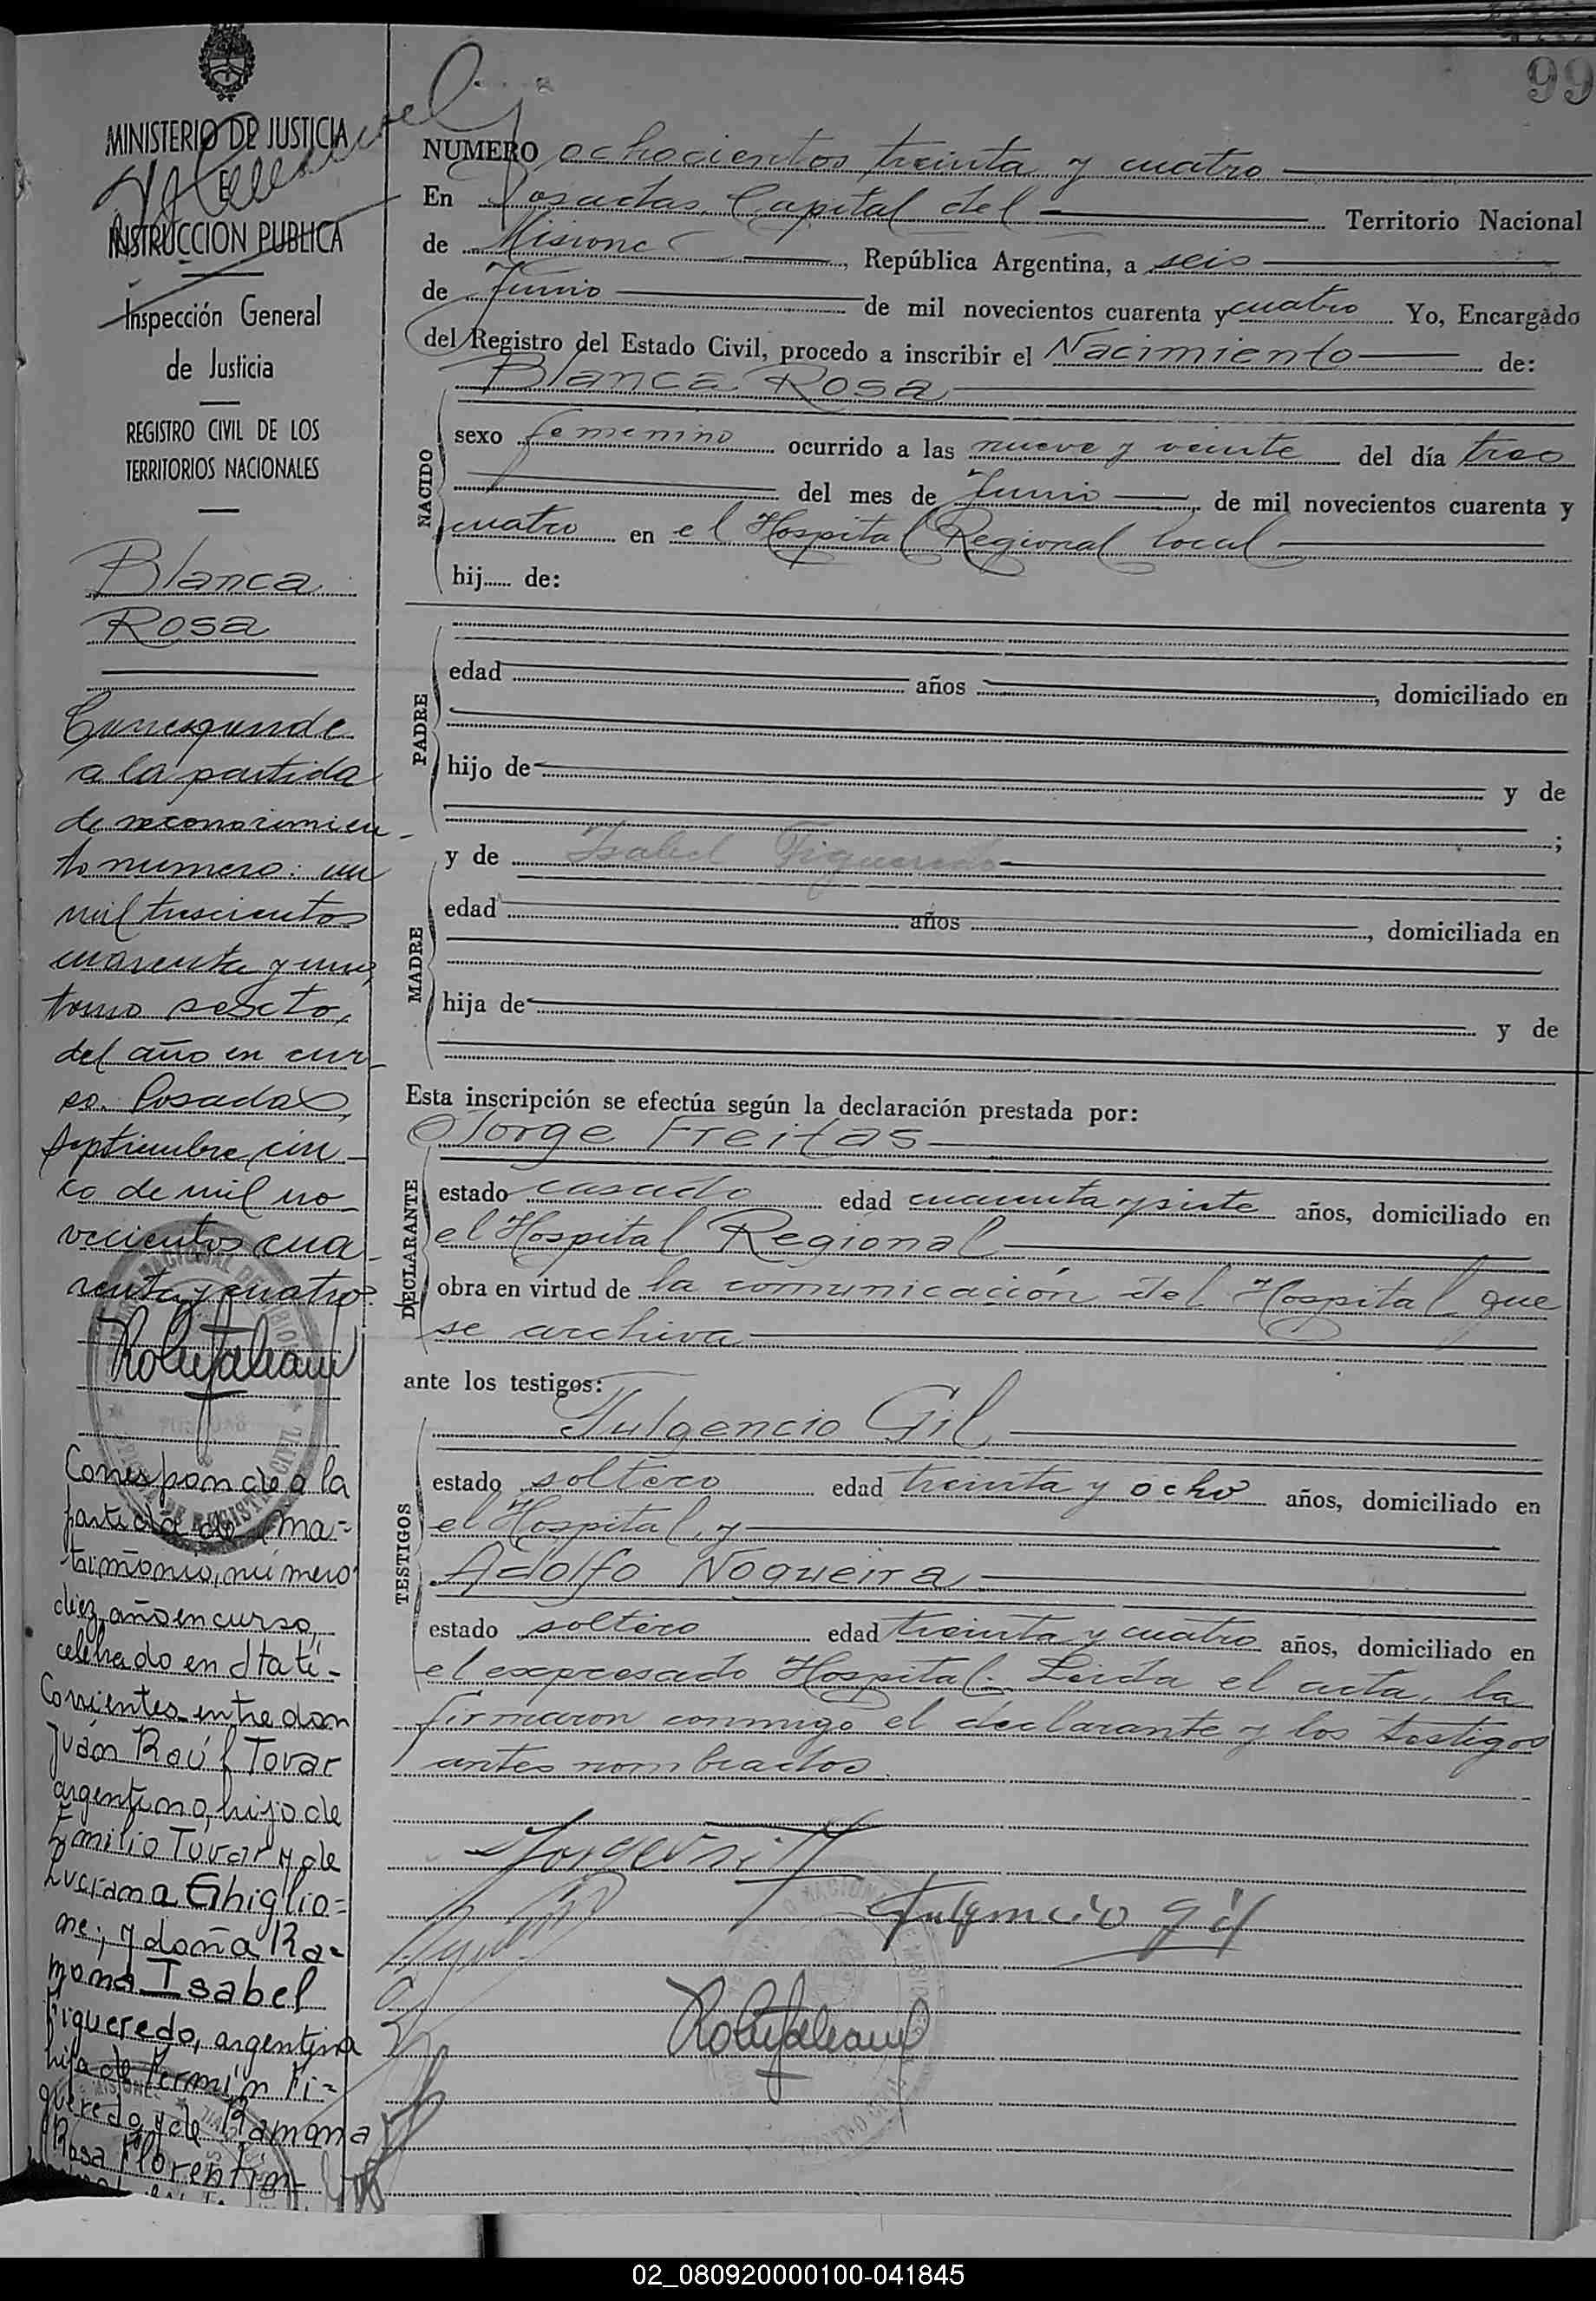 99
MINISTERIO DE JUSTICIA
E
INSTRUCCION PUBLICA
Inspección General
de Justicia
REGISTRO CIVIL DE LOS
TERRITORIOS NACIONALES
Blanca
Rosa
Corresponde
a la partida
de reconocimien-
to numero: un
mil trescientos
cuarenta y uno,
tomo sexto,
del año en cur-
so. Posadas,
Septiembre cin-
co de mil no-
vecientos cua-
renta y cuatro.
Corresponde a la
partida de ma=
trimonio, número
diez, año en curso,
celebrado en Itatí-
Corrientes entre don
Juan Raúl Tovar
argentino, hijo de
Emilio Tovar y de
Luciana Ghiglio=
ne; y doña Ra=
mona Isabel
Figueredo, argentina
hija de Fermín Fi=
gueredo y de Ramona
Rosa Florentin-
NUMERO ochocientos treinta y cuatro
En Posadas, Capital del Territorio Nacional
de Misiones, República Argentina, a seis
de Junio de mil novecientos cuarenta y cuatro Yo, Encargado
del Registro del Estado Civil, procedo a inscribir el Nacimiento de:
Blanca Rosa
NACIDO
sexo femenino ocurrido a las nueve y veinte del día tres
del mes de Junio, de mil novecientos cuarenta y
cuatro en el Hospital Regional local
hij...... de:
PADRE
edad años , domiciliado en
hijo de y de
;
MADRE
y de Isabel Figueredo
edad años , domiciliada en
hija de y de
Esta inscripción se efectúa según la declaración prestada por:
Jorge Freitas
DECLARANTE
estado casado edad cuarenta y siete años, domiciliado en
el Hospital Regional
obra en virtud de la comunicación del Hospital que
se archiva
ante los testigos:
Fulgencio Gil
TESTIGOS
estado soltero edad treinta y ocho años, domiciliado en
el Hospital, y
Adolfo Nogueira
estado soltero edad treinta y cuatro años, domiciliado en
el expresado Hospital.- Leida el acta, la
firmaron conmigo el declarante y los testigos
antes nombrados.
Fulgencio Gil
02_080920000100-041845